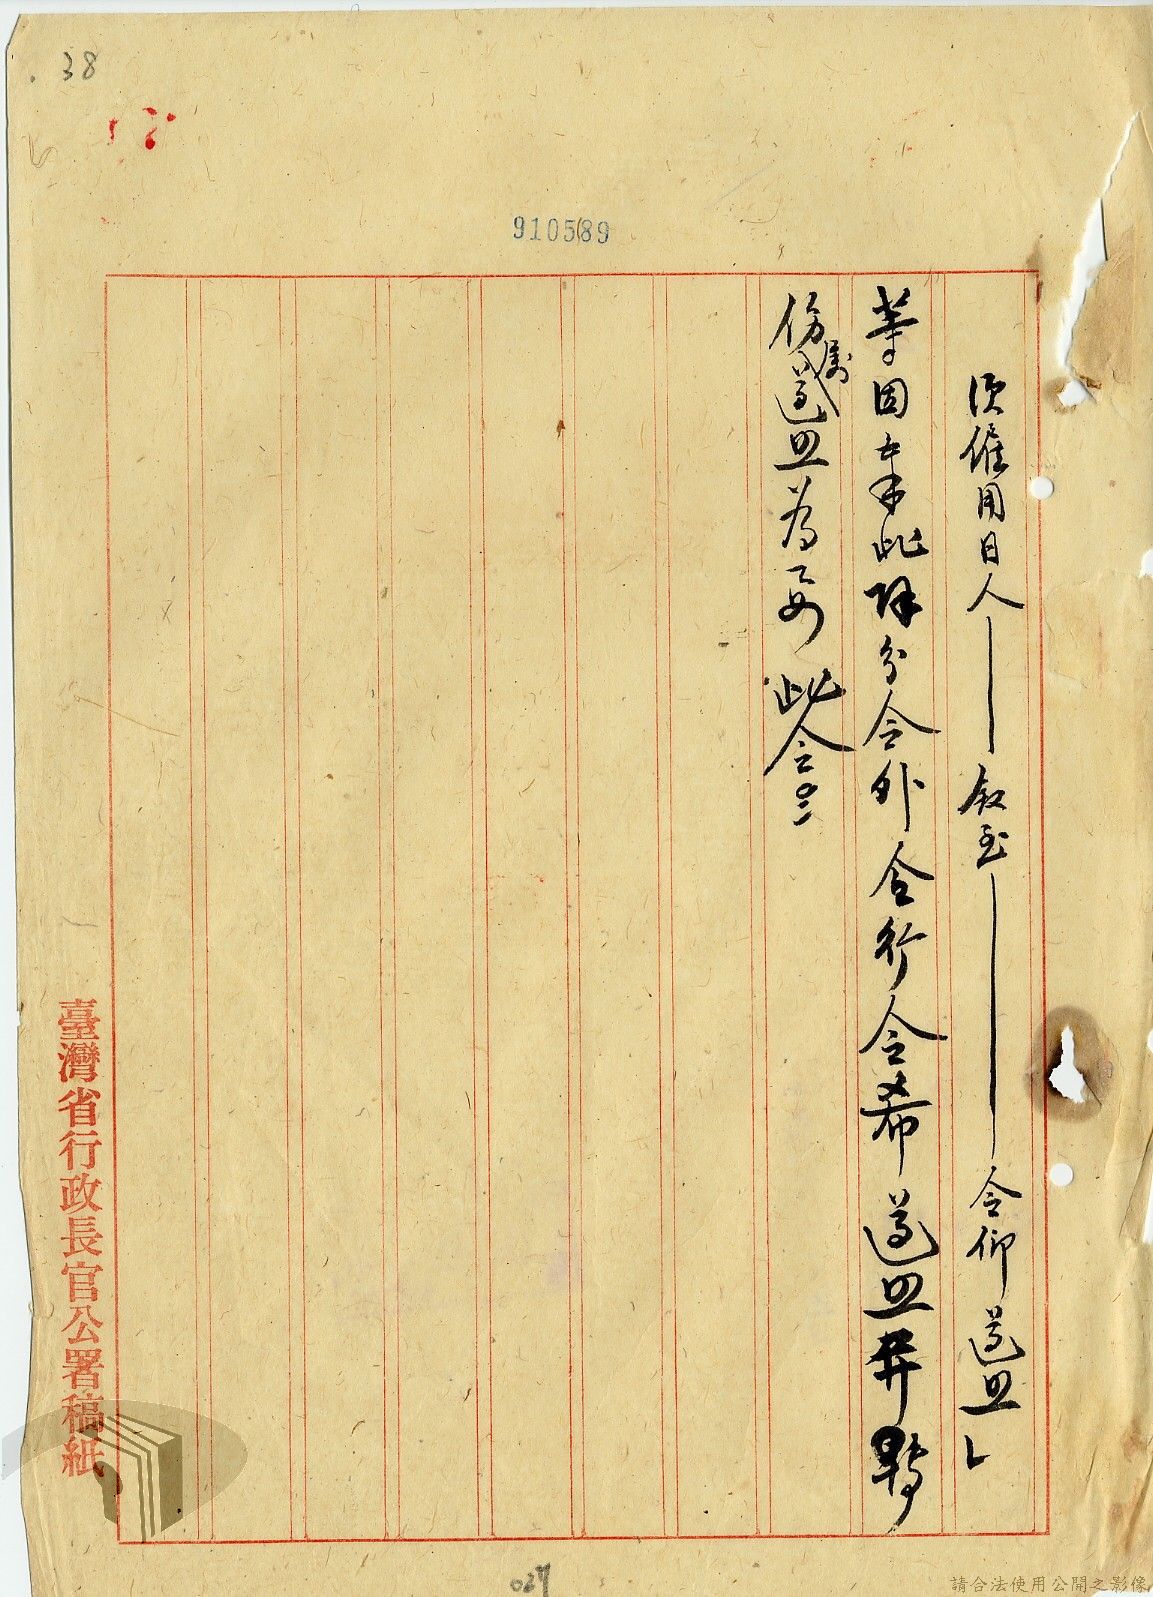 38
910589
須僱用日人——敘至——令仰遵照」
等因奉此除分令外合行令希遵照并轉
飭屬遵照為要此令
臺灣省行政長官公署稿紙
027
請合法使用公開之影像